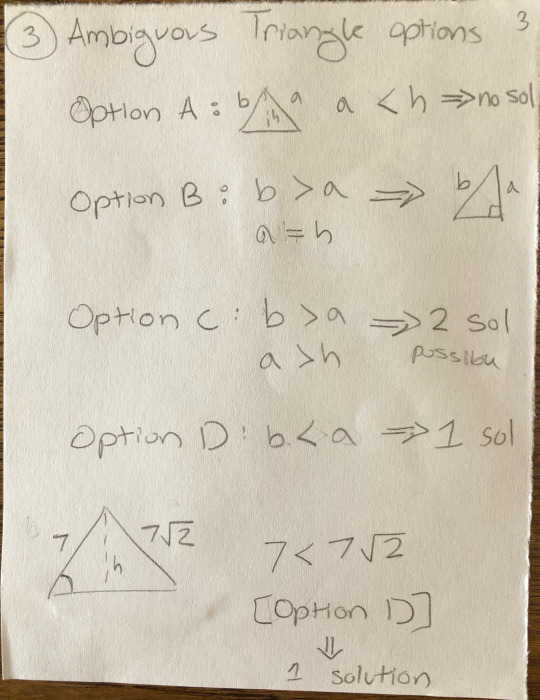 3 Ambiguous Triangle options 3
Option A : b a h a < h ⇒ no sol
Option B : b > a ⇒ b a
a = h
Option C : b > a ⇒ 2 sol
a > h possible
Option D : b < a ⇒ 1 sol
7 7√2 h 7 < 7√2
[Option D]
⇓
1 solution